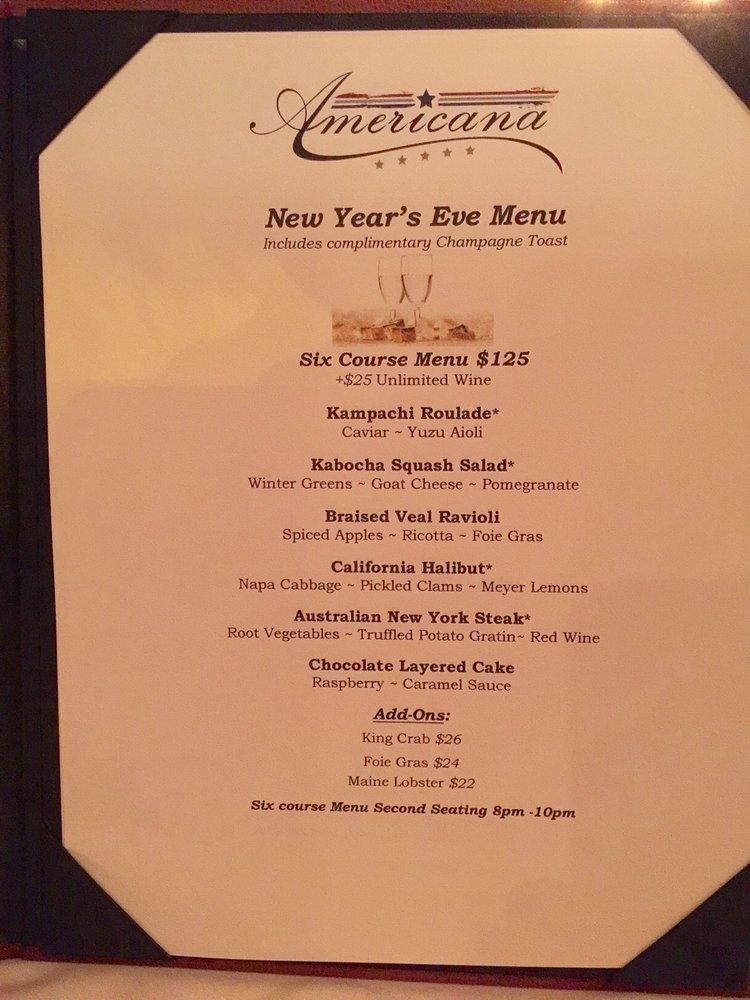 Americana
New Year's Eve Menu
Includes complimentary Champagne Toast
Six Course Menu $125
+$25 Unlimited Wine
Kampachi Roulade*
Caviar ~ Yuzu Aioli
Kabocha Squash Salad*
Winter Greens ~ Goat Cheese ~ Pomegranate
Braised Veal Ravioli
Spiced Apples ~ Ricotta ~ Foie Gras
California Halibut*
Napa Cabbage ~ Pickled Clams ~ Meyer Lemons
Australian New York Steak*
Root Vegetables ~ Truffled Potato Gratin~ Red Wine
Chocolate Layered Cake
Raspberry ~ Caramel Sauce
Add-Ons:
King Crab $26
Foie Gras $24
Maine Lobster $22
Six course Menu Second Seating 8pm -10pm